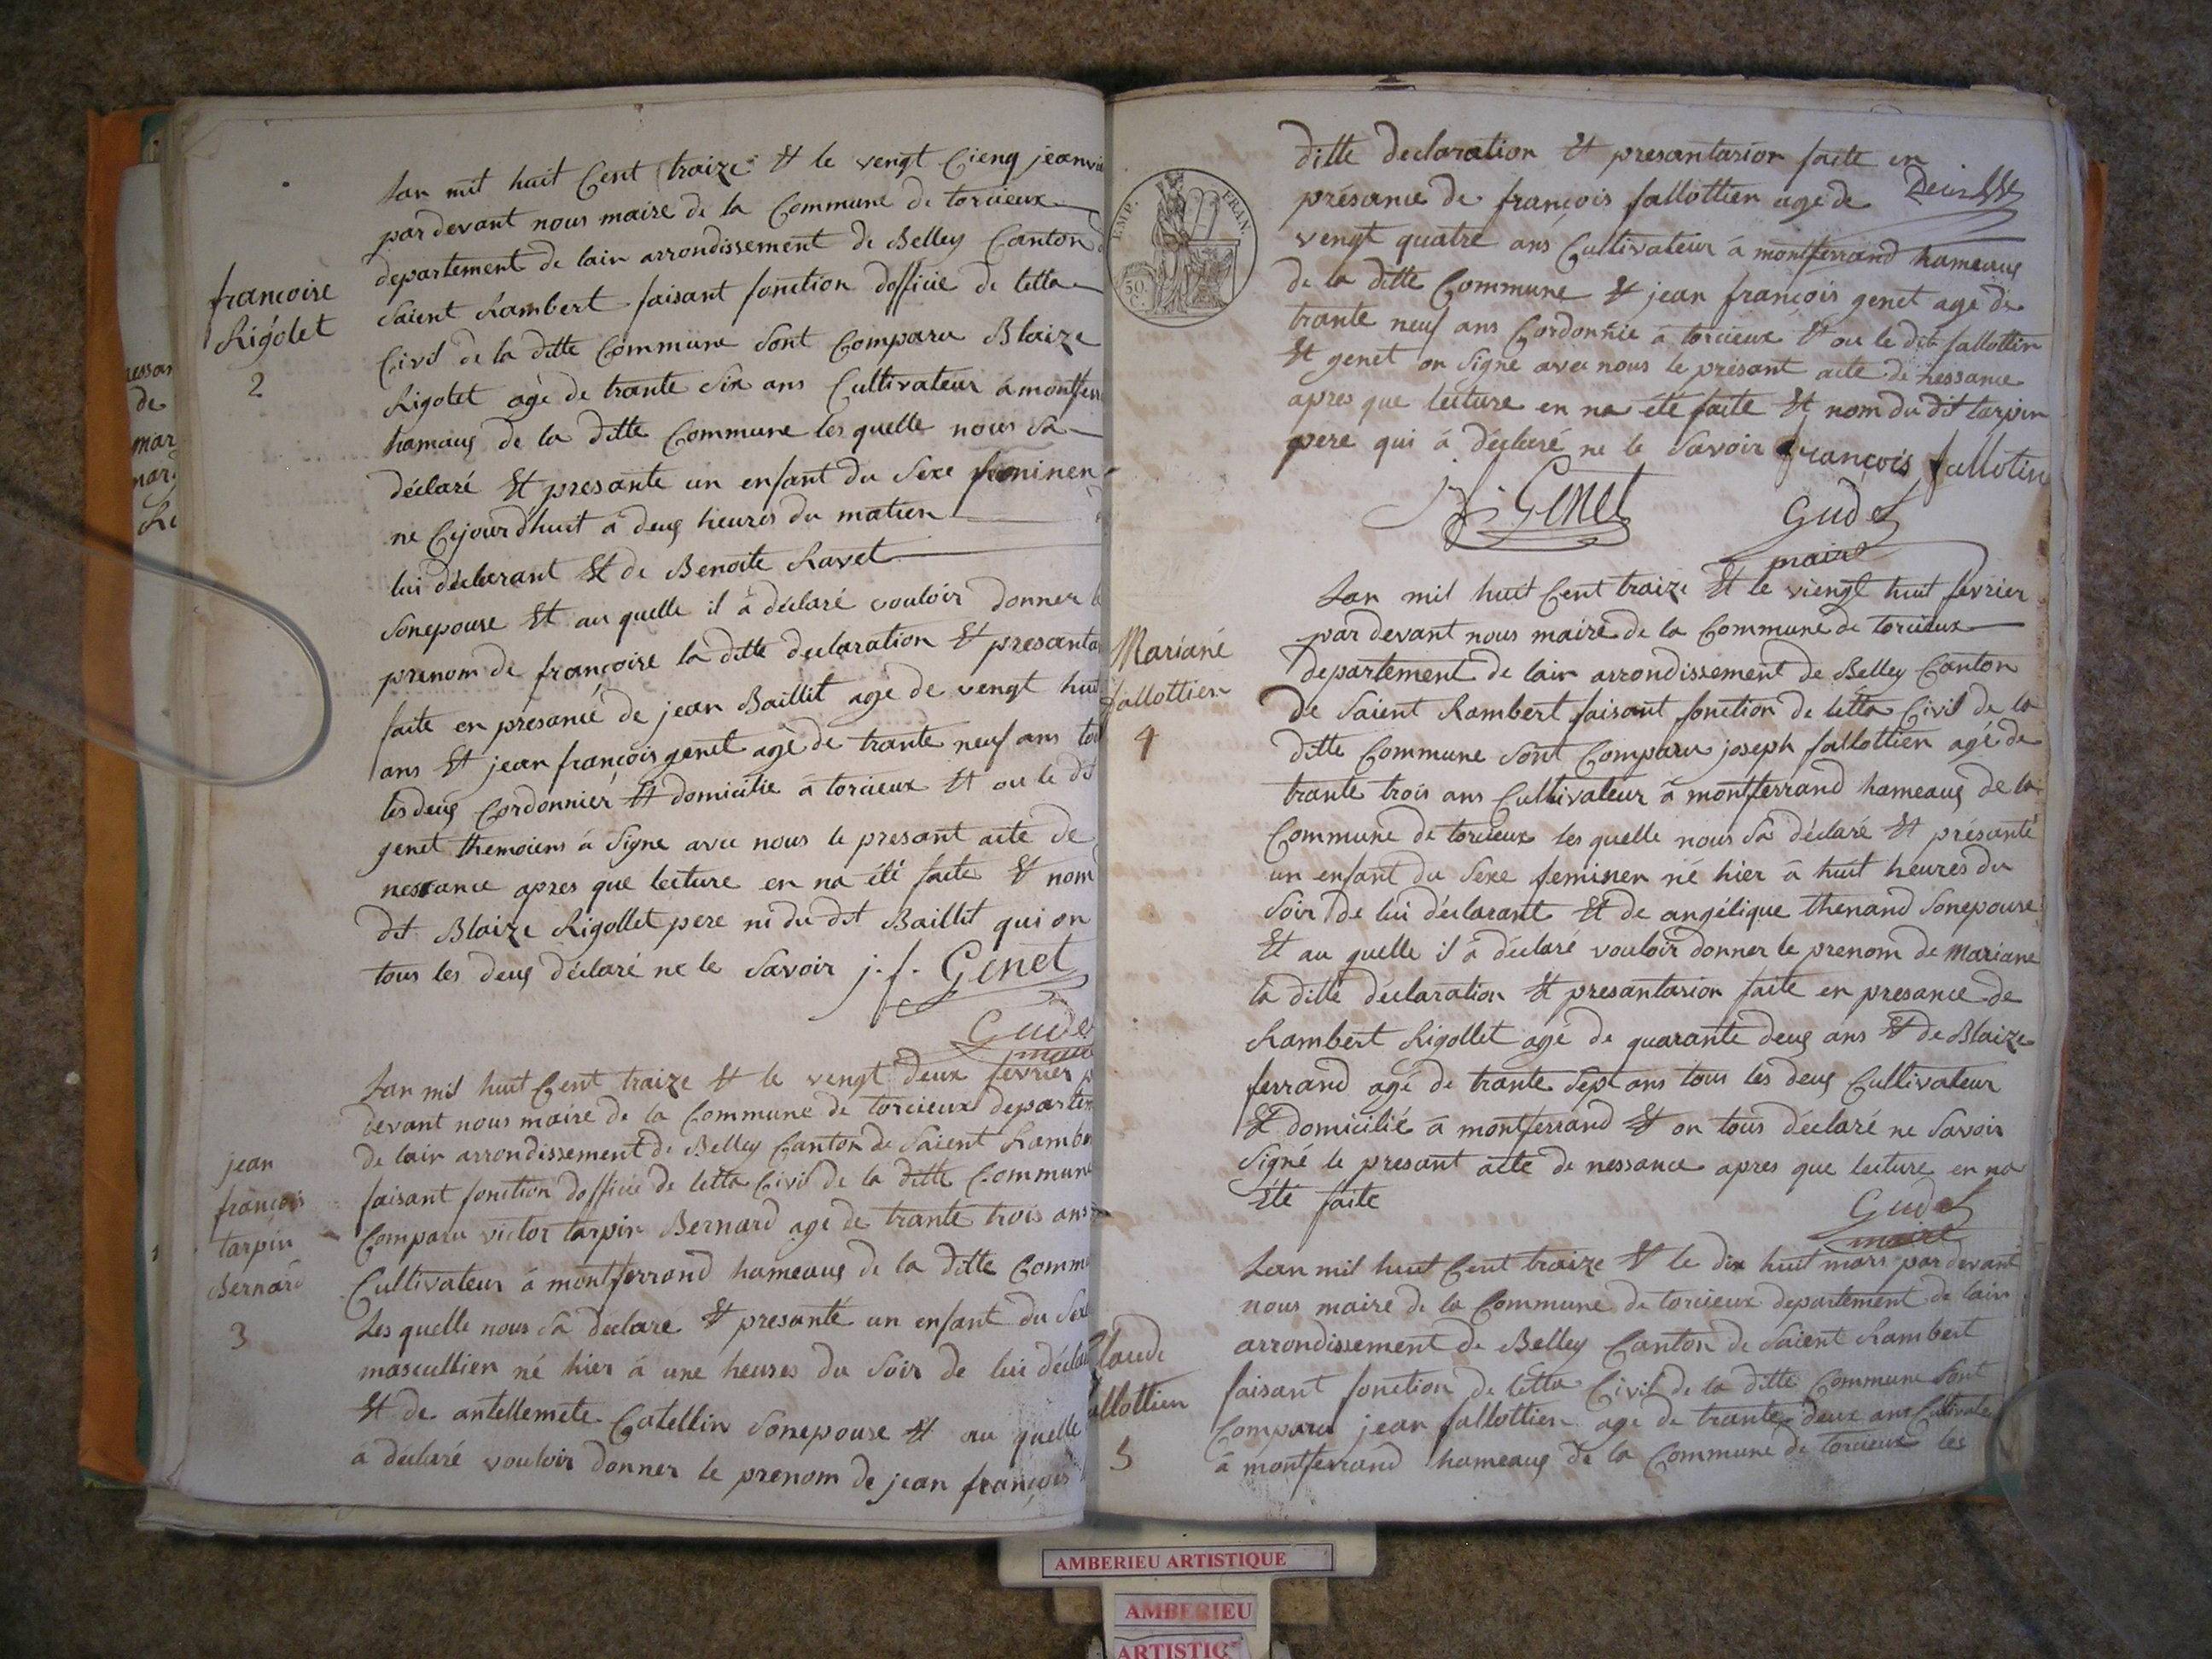 francoise
Rigolet
2
Lan mil huit Cent traize et le vengt Cienq jeanvi
par devant nous maire de la Commune de torcieux
departement de lain arrondissement de Belley Canton d
Saient Rambert faisant fonction dofficié de letta
Civil de la ditte Commune Sont Comparu Blaize
Rigotet agé de trante Six ans Cultivateur a montferr
hamaug de la ditte Commune les quelle nous Sa
déclaré et presante un enfant du Sexe feminen
ne Cejourdhuit a deug heures du matien
lui déclarant et de Benoite Ravet
Sonepouse et au quelle il a déclaré vouloir donner le
prenom de françoise la ditte declaration et presanta
faite en presance de jean Baillit age de vengt huit
ans et jean françois genet agé de trante neuf ans tou
les deug Cordonnier et domicilié a torcieux et ou le dit
genet themoiens a Signe avec nous le presant acte de
nessance apres que lecture en na été faite et nom
dit Blaize Rigollet pere ni du dit Baillit qui on
tous les deug déclaré ne le Savoir j. f. Genet
Gudet
maire
jean
françois
tarpin
Bernard
3
Lan mil huit Cent traize et le vengt deux fevrier p
devant nous maire de la Commune de torcieux departem
de lain arrondissement de Belley Canton de Saient Rambe
faisant fonction dofficié de letta Civil de la ditte Commune
Comparu victor tarpin Bernard age de trante trois ans
Cultivateur á montferrand hameaug de la ditte Comm
Les quelle nous Sa déclaré et presanté un enfant du Sex
mascullien né hier á une heures du Soir de lui décla
et de antellemete Catellin Sonepouse et au quelle
a déclaré vouloir donner le prenom de jean françois
EMP. FRAN.
50
ditte declaration et presantasion faite en
présance de françois fallottien age de
vengt quatre ans Cultivateur á montferrand hameaug
de la ditte Commune et jean françois genet age de
trante neuf ans Cordonnie a torcieux et ou le dit fallottin
et genet on Signe avec nous le présant acte de nessance
apres que lecture en na été faite et nom du dit tarpin
pere qui á déclaré ne le Savoir françois fallotin
J. f. Genet
Gudet
maire
Mariané
fallottien
4
Lan mil huit Cent traize et le viengt huit fevrier
par devant nous maire de la Commune de torcieux
departement de lain arrondissement de Belley Canton
De Saient Rambert faisant fonction de letta Civil de la
ditte Commune Sont Comparu joseph fallottien agé de
trante trois ans Cultivateur á montferrand hameaug de la
Commune de torcieux les quelle nous Sa déclaré et présanté
un enfant du Sexe feminen né hier á huit heures du
Soir de lui déclarant et de angélique thenand Sonepouse
et au quelle il á déclaré vouloir donner le prenom de Mariane
la ditte déclaration et presantasion faite en presance de
Rambert Rigollet agé de quarante deug ans et de Blaize
ferrand agé de trante Sept ans tous les deug Cultivateur
et domicilié á montferrand et on tous déclaré ne Savoir
Signé le presant acte de nessance apres que lecture en na
été faite
Gudet
maire
Claude
fallottien
5
Lan mil huit Cent traize et le dix huit mars par devant
nous maire de la Commune de torcieux departement de lain
arrondissement de Belley Canton de Saient Rambert
faisant fonction de letta Civil de la ditte Commune Sont
Comparu jean fallottien age de trante deux ans Cultivate
á montferrand hameaug de la Commune de torcieux les
AMBERIEU ARTISTIQUE
AMBERIEU
ARTISTIQ